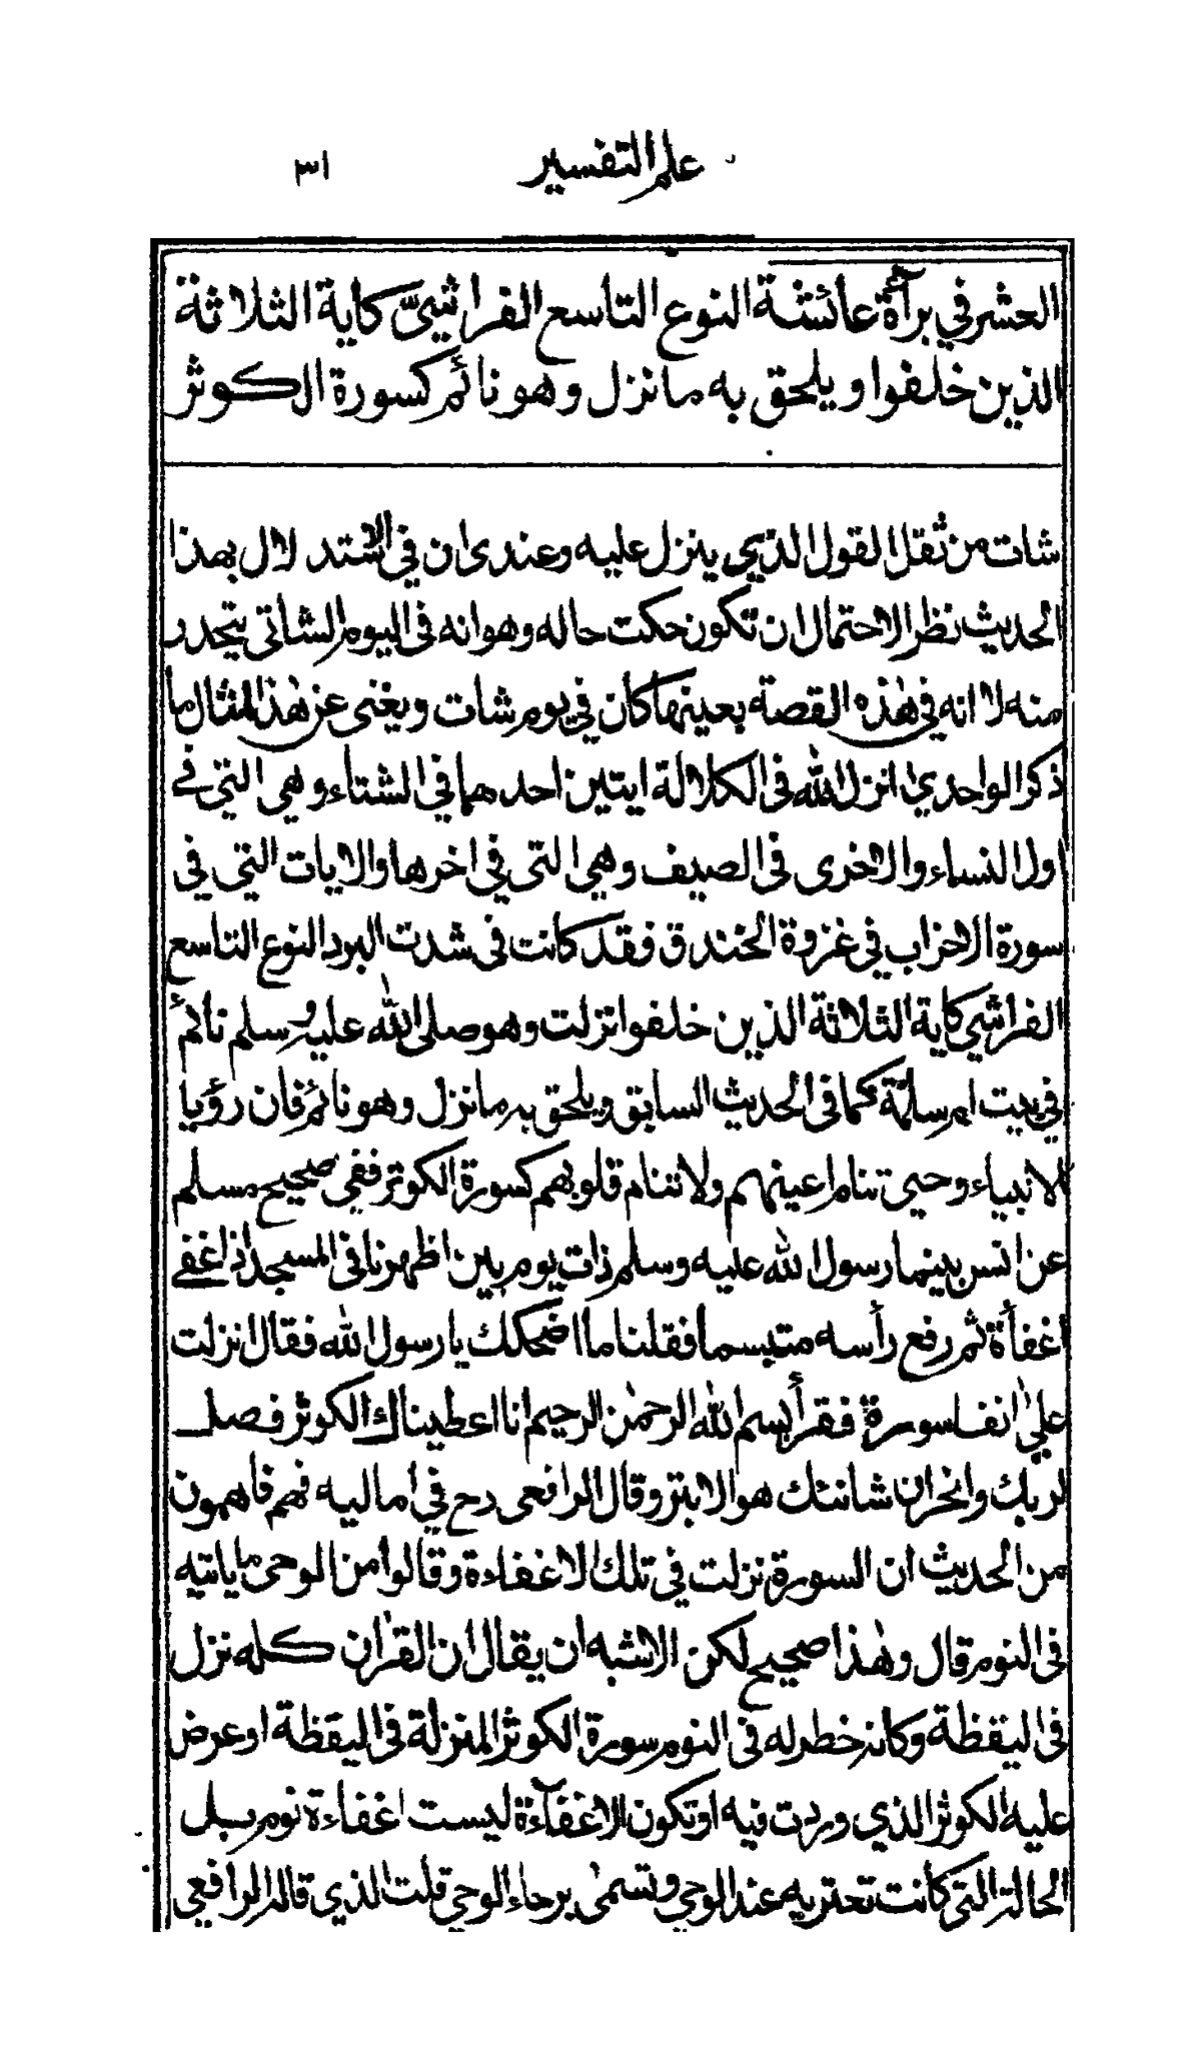 علم التفسير ٣١
العشر في برآءة عائشة النوع التاسع الفراشيّ كاية الثلاثة
الذين خلفوا ويلحق به ما نزل وهو نائم كسورة الكوثر
شات من ثقل القول الذي ينزل عليه وعندى ان في الاستدلال بهذا
الحديث نظر الاحتمال ان تكون حكت حاله وهو انه في اليوم الشاتي يتحدر
منه لا انه في هٰذه القصة بعينها كان في يوم شات ويغنى عن هٰذا المثال ما
ذكر الواحدي انزل الله في الكلالة ايتين احدهما في الشتاء وهي التي في
اول النساء والاخرى في الصيف وهي التي في اخرها والايات التي في
سورة الاحزاب في غزوة الخندق فقد كانت في شدت البرد النوع التاسع
الفراشي كاية الثلاثة الذين خلفوا نزلت وهو صلى الله عليه وسلم نائم
في بيت ام سلمة كما في الحديث السابق ويلحق به ما نزل وهو نائم فان رؤيا
الانبياء وحي تنام اعينهم ولا تنام قلوبهم كسورة الكوثر ففي صحيح مسلم
عن انس بينما رسول الله عليه وسلم ذات يوم بين اظهرنا في المسجد اذ اغفے
اغفأة ثم رفع رأسه متبسما فقلنا ما اضحكك يا رسول الله فقال انزلت
عليّ انفا سورة فقرأ بسم الله الرحمٰن الرحيم انا اعطيناك الكوثر فصل
لربك وانحر ان شانئك هو الابتر وقال الرافعى رح في اماليه فهم فاهمون
من الحديث ان السورة نزلت في تلك الاغفاءة وقالوا من الوحى ما ياتيه
في النوم قال وهٰذا صحيح لكن الاشبه ان يقال ان القرٰان كله نزل
في اليقظة وكانه خطر له في النوم سورة الكوثر المنزلة في اليقظة او عرض
عليه الكوثر الذي وردت فيه او تكون الاغفآءة ليست اغفاءة نوم بل
الحالة التي كانت تعتريه عند الوحي وتسمىٰ برحاء الوحي قلت الذي قاله الرافعي